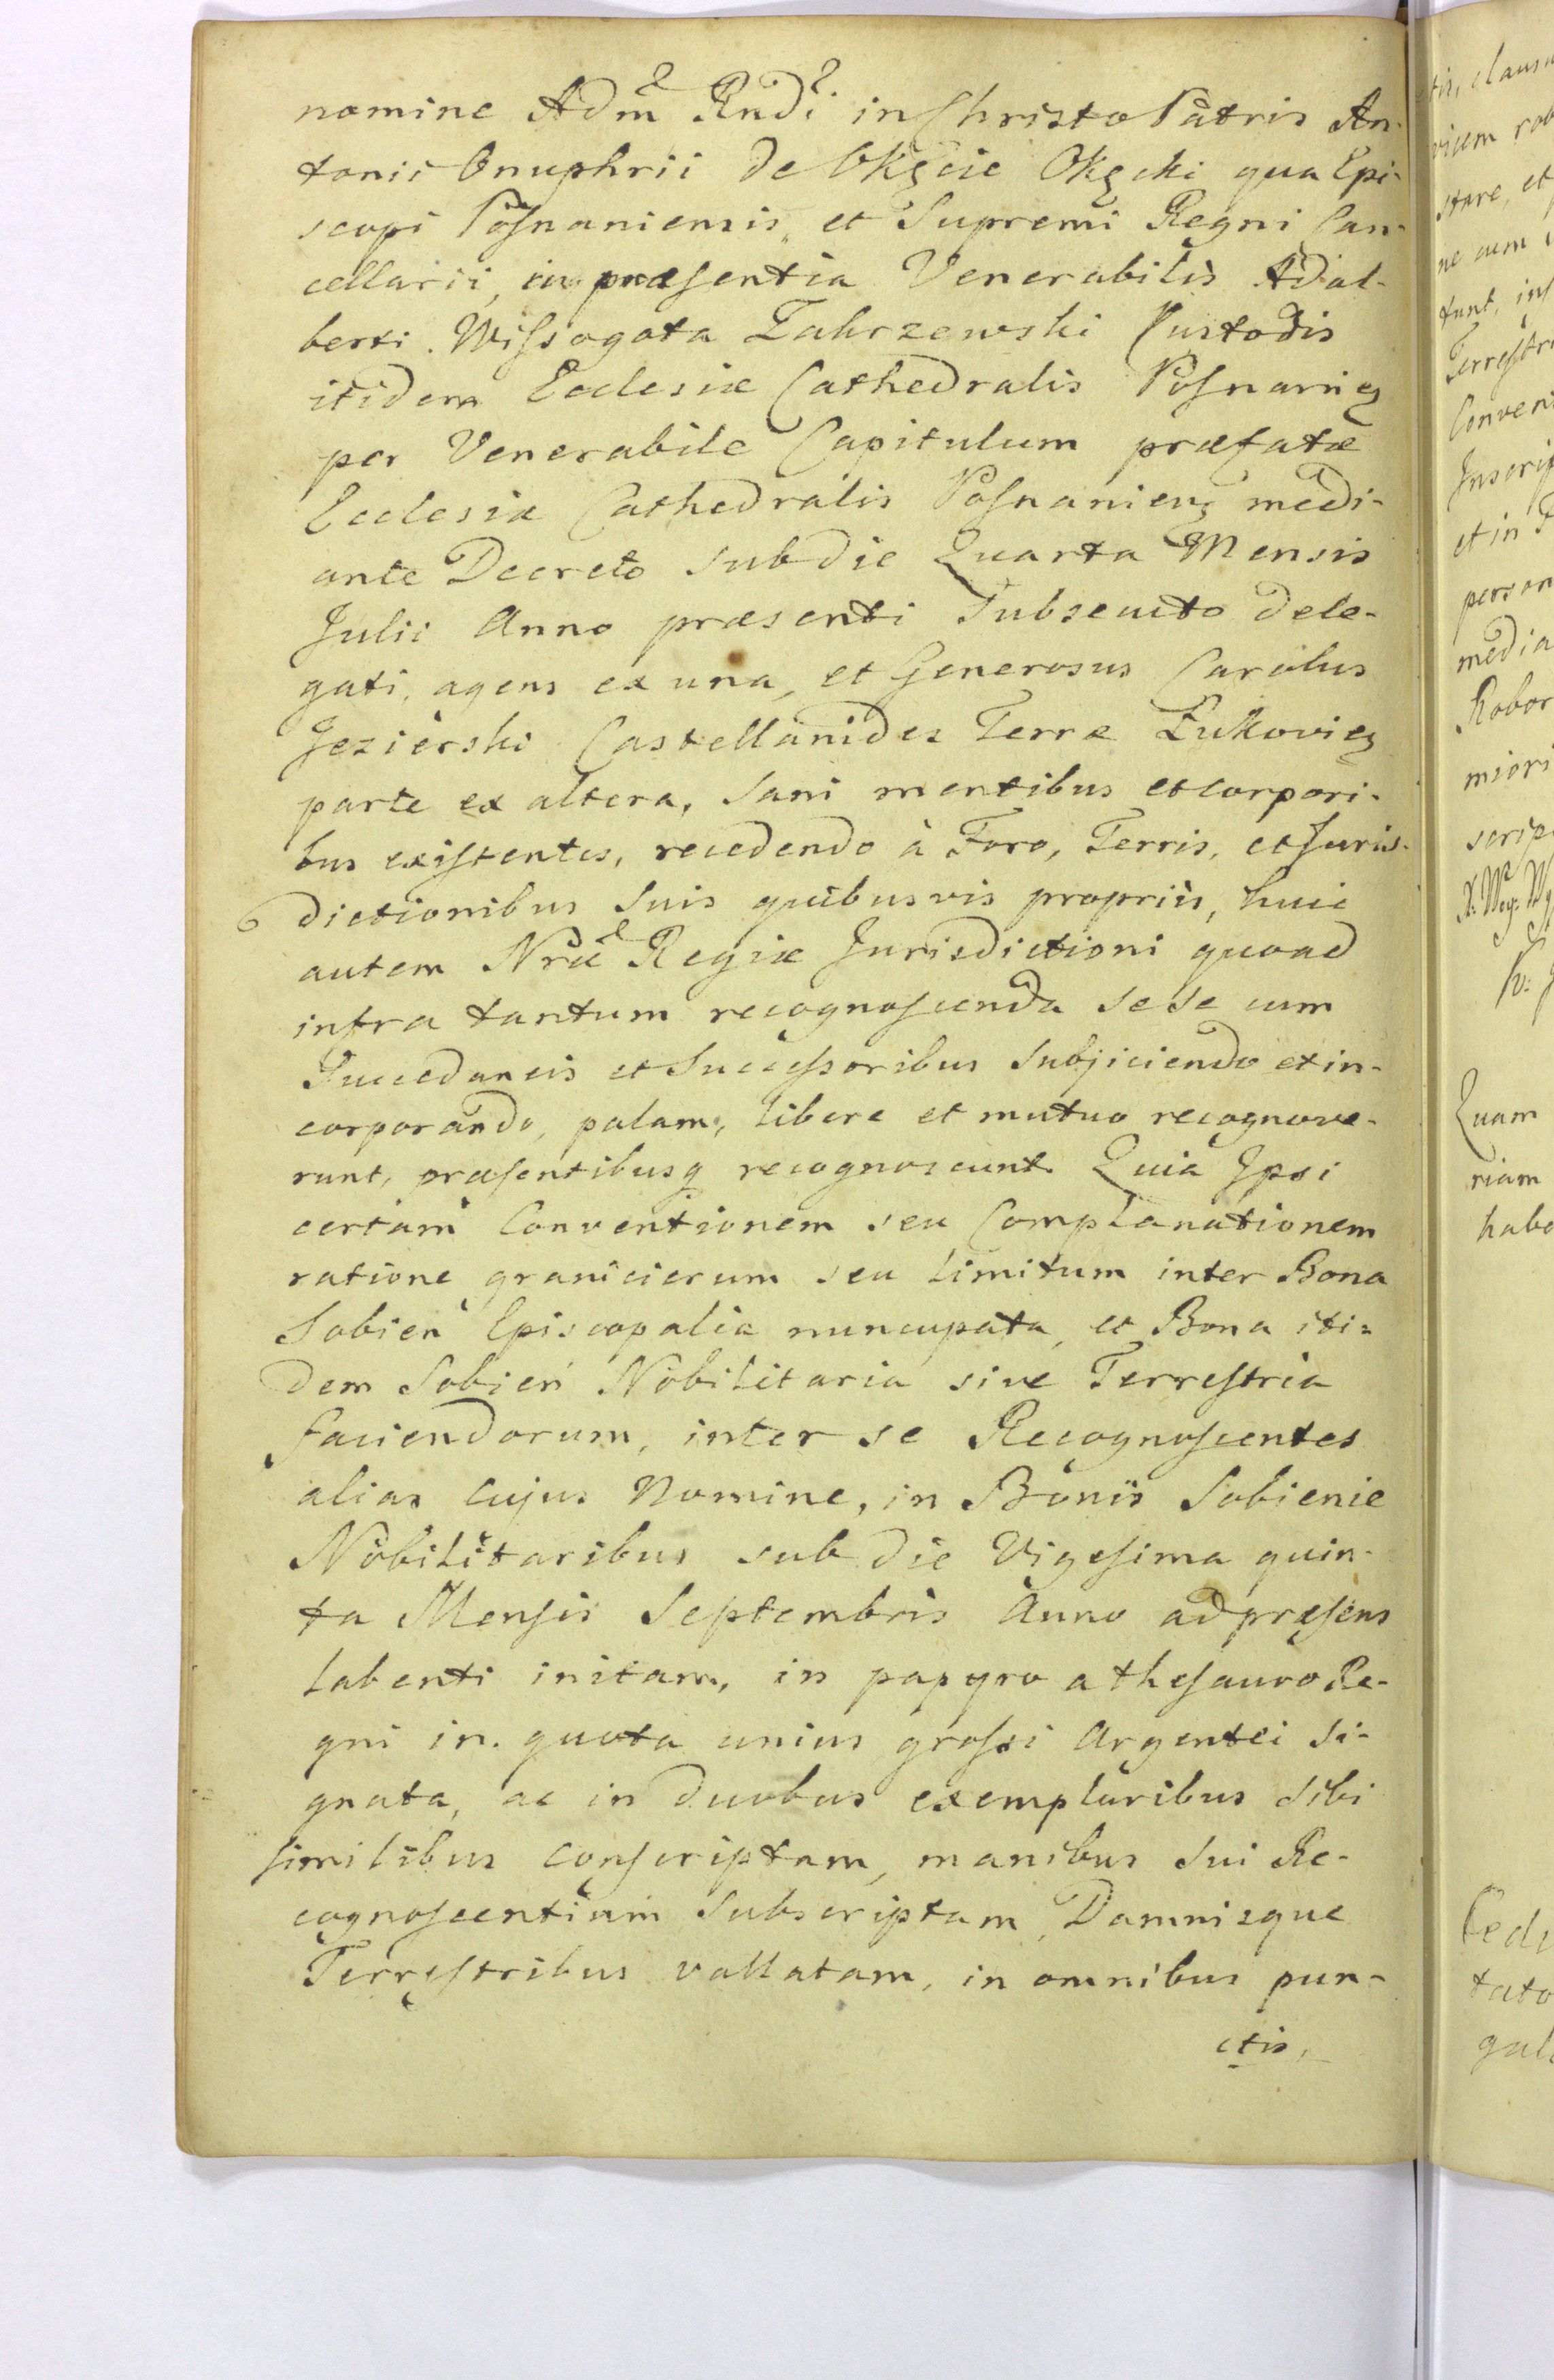 nomine Adm̃ Rndi in Christo Patris An-
tonii Onuphrii de Okęcie Okęcki qua Epi-
scopi Posnaniensis, et Supremi Regni Can-
cellarii, in præsentia Venerabilis Adal-
berti Wissogota Zakrzewski Custodis
itidem Ecclesiæ Cathedralis Posnanień
per Venerabile Capitulum præfatæ
Ecclesiæ Cathedralis Posnanień medi-
ante Decreto sub die Quarta Mensis
Julii Anno præsenti Subsecuto dele-
gati, agens ex una, et Generosus Carolus
Jezierski Castellanides Terræ Łukovień
parte ex altera, Sani mentibus et corpori-
bus existentes, recedendo à Foro, Terris, et Juris-
dictionibus Suis quibusvis propriis, huic
autem Nrae Regiæ Jurisdictioni quoad
infra tantum recognoscenda sese cum
Succedaneis et Successoribus Subjiciendo et in-
corporando, palam, libere et mutuo recognove-
runt, præsentibusq recognoscunt. Quia Ipsi
certam Conventionem seu Complanationem
ratione granicierum seu limitum inter Bona
Sobień Episcopalia nuncupata, et Bona iti-
dem Sobień Nobilitaria sive Terrestria
faciendorum, inter se Recognoscentes
alias cujus Nomine, in Bonis Sobienie
Nobilitaribus sub die Vigesima quin-
ta Mensis Septembris Anno ad præsens
labenti initam, in papyro a thesauro Re-
gni in quota unius grossi Argentei si-
gnata, ac in duobus exemplaribus sibi
similibus conscriptam, manibus Sui Re-
cognoscentium Subscriptam, Damnisque
Terrestribus vallatam, in omnibus pun-
ctis,